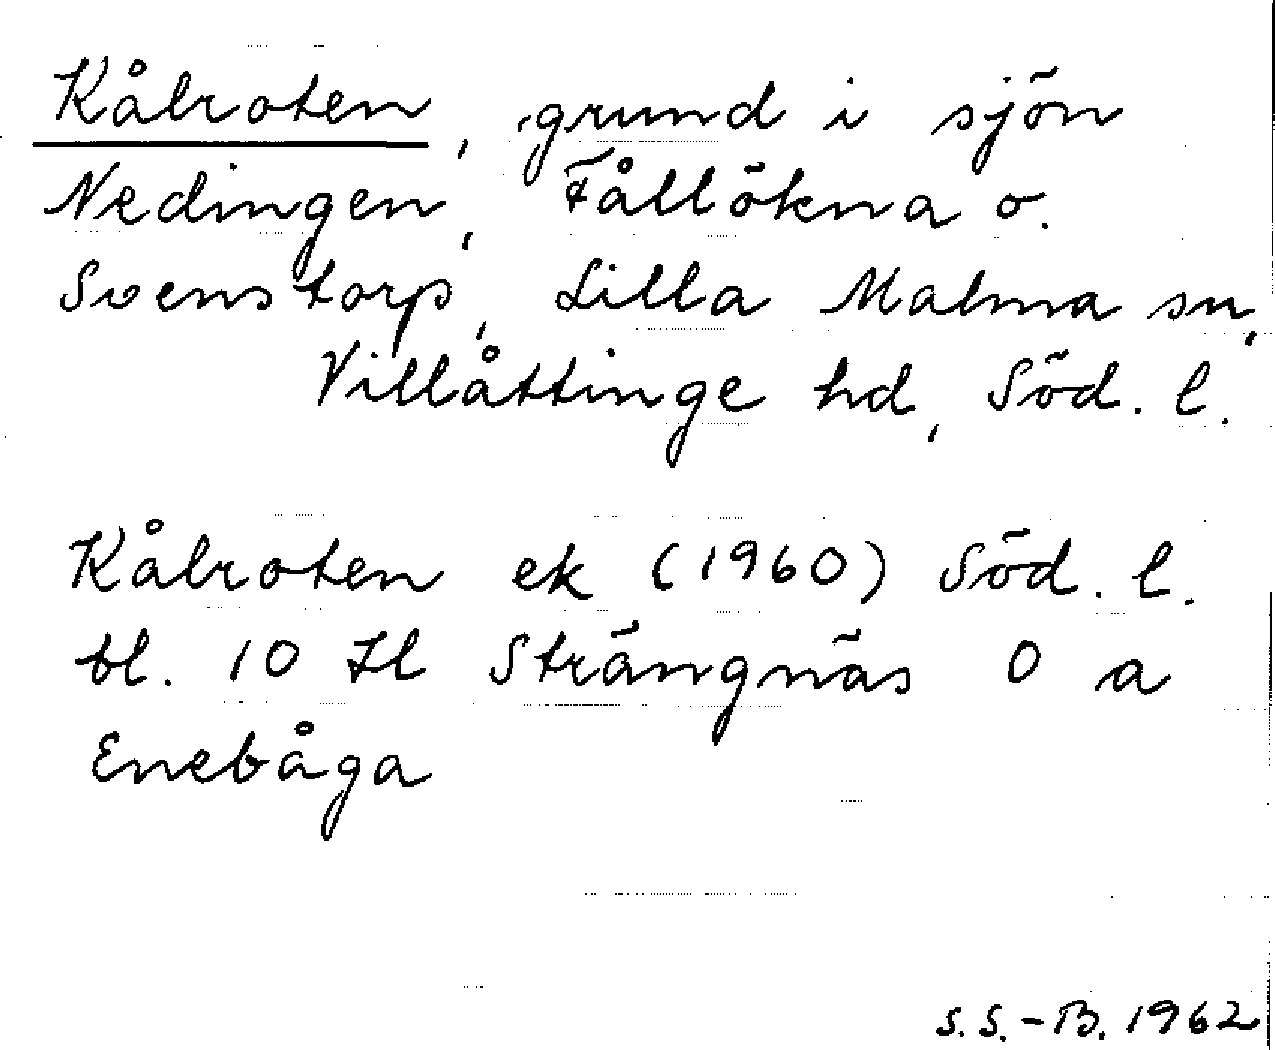 Kålroten, grund i sjön
Nedingen, Fållökna o.
Svenstorp, Lilla Malma sn,
Villåttinge hd, Söd. l.
Kålroten ek (1960) Söd. l.
bl. 10 Il Strängnäs 0 a
Enebåga
S.S.-B. 1962